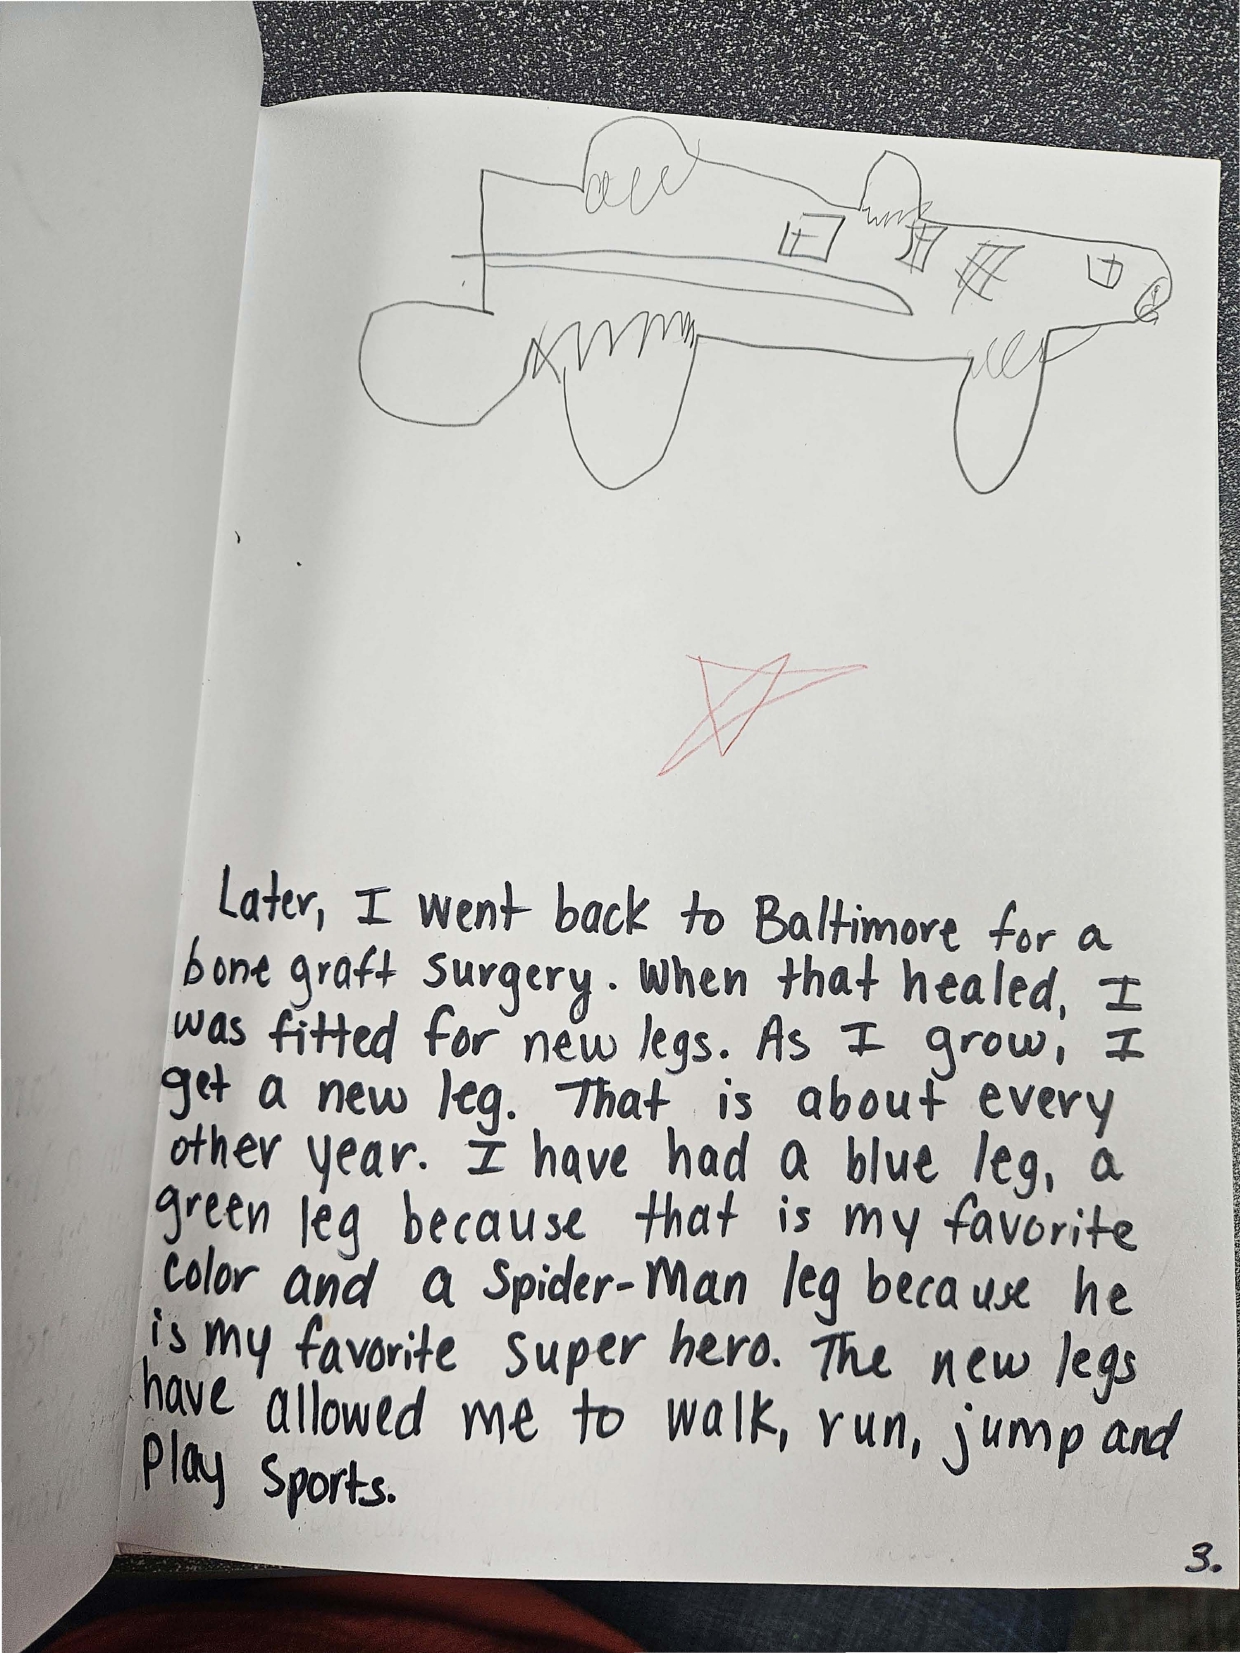 Later, I went back to Baltimore for a
bone graft surgery. When that healed, I
was fitted for new legs. As I grow, I
get a new leg. That is about every
other year. I have had a blue leg, a
green leg because that is my favorite
color and a Spider-Man leg because he
is my favorite super hero. The new legs
have allowed me to walk, run, jump and
play sports.
3.